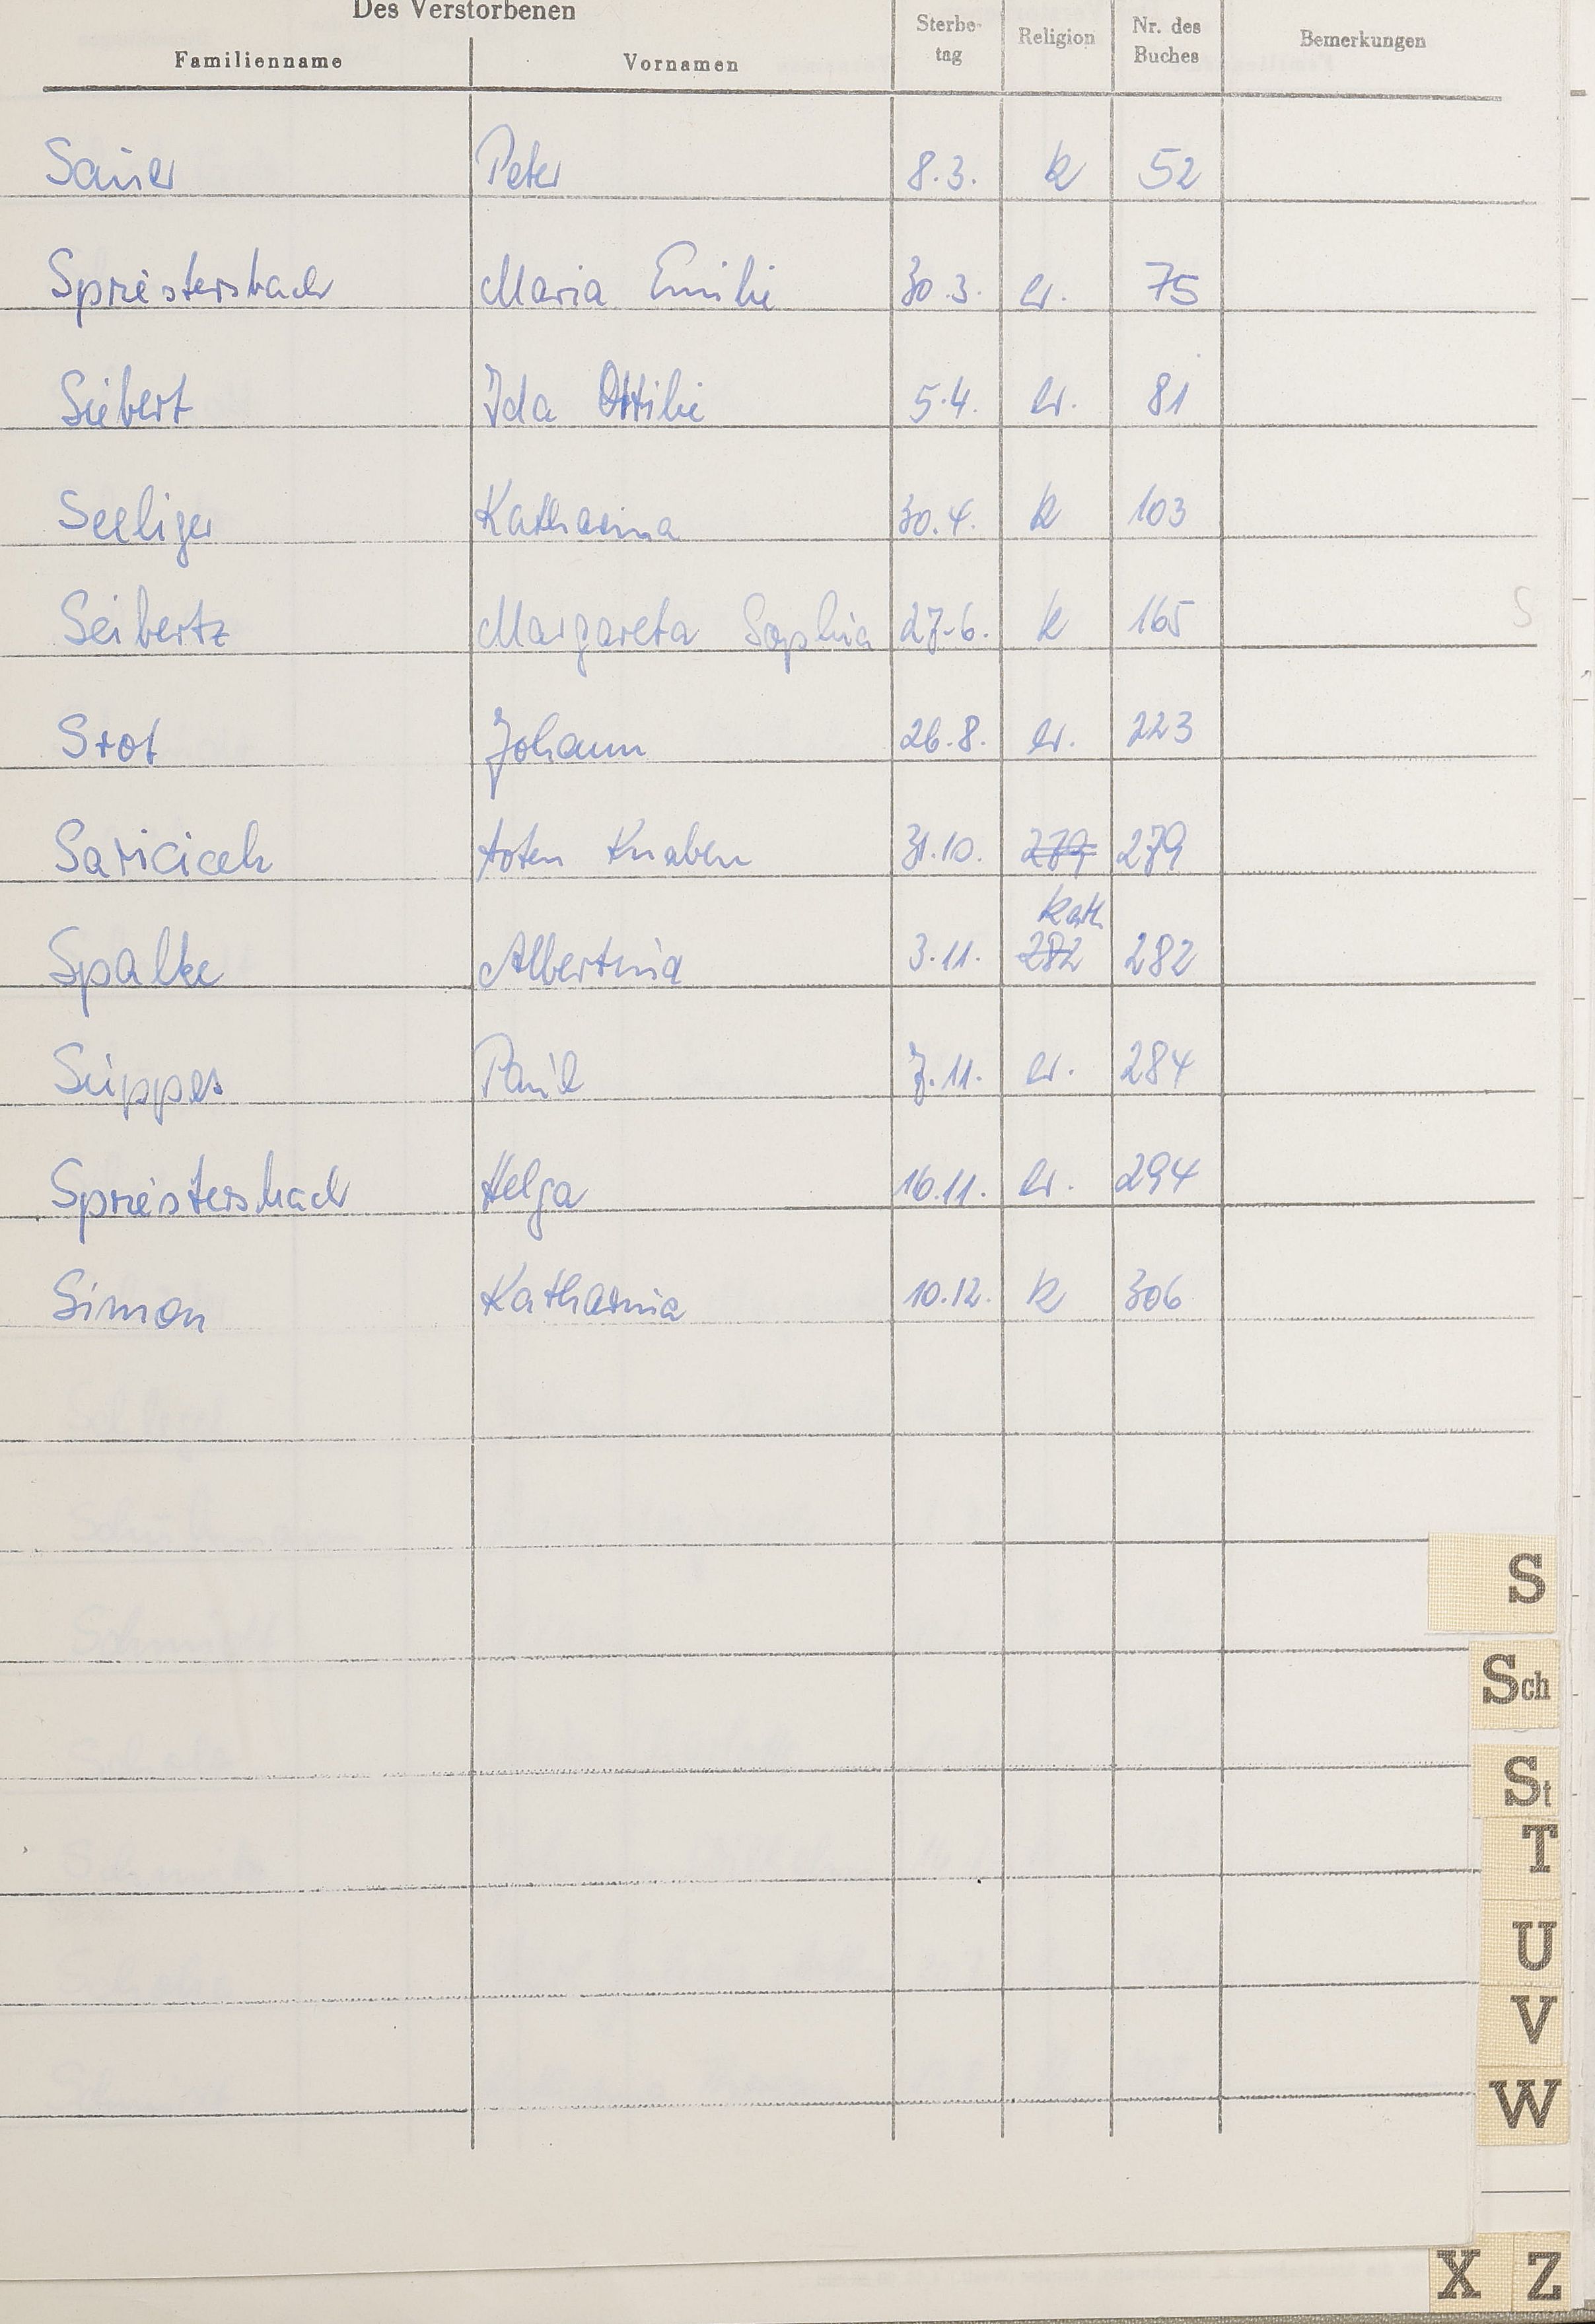 Des Verstorbenen
Familienname Vornamen Sterbe- tag Religion Nr. des Buches Bemerkungen
Sauer Peter 8.3. k 52
Spriestersbach Maria Emilie 30.3. ev. 75
Siebert Ida Ottilie 5.4. ev. 81
Seeliger Katharina 30.4. k 103
Seibertz Margareta Sophia 27.6. k 165
S
Srot Johann 26.8. ev. 223
Saricicek toten Knaben 31.10. 279 279
kath.
Spalke Albertina 3.11. 282 282
Paul 7.11. ev. 284
Spriestersbach Helga 16.11. ev. 294
Simon Katharina 10.12. k 306
S
Sch
St
T
U
V
W
X Z